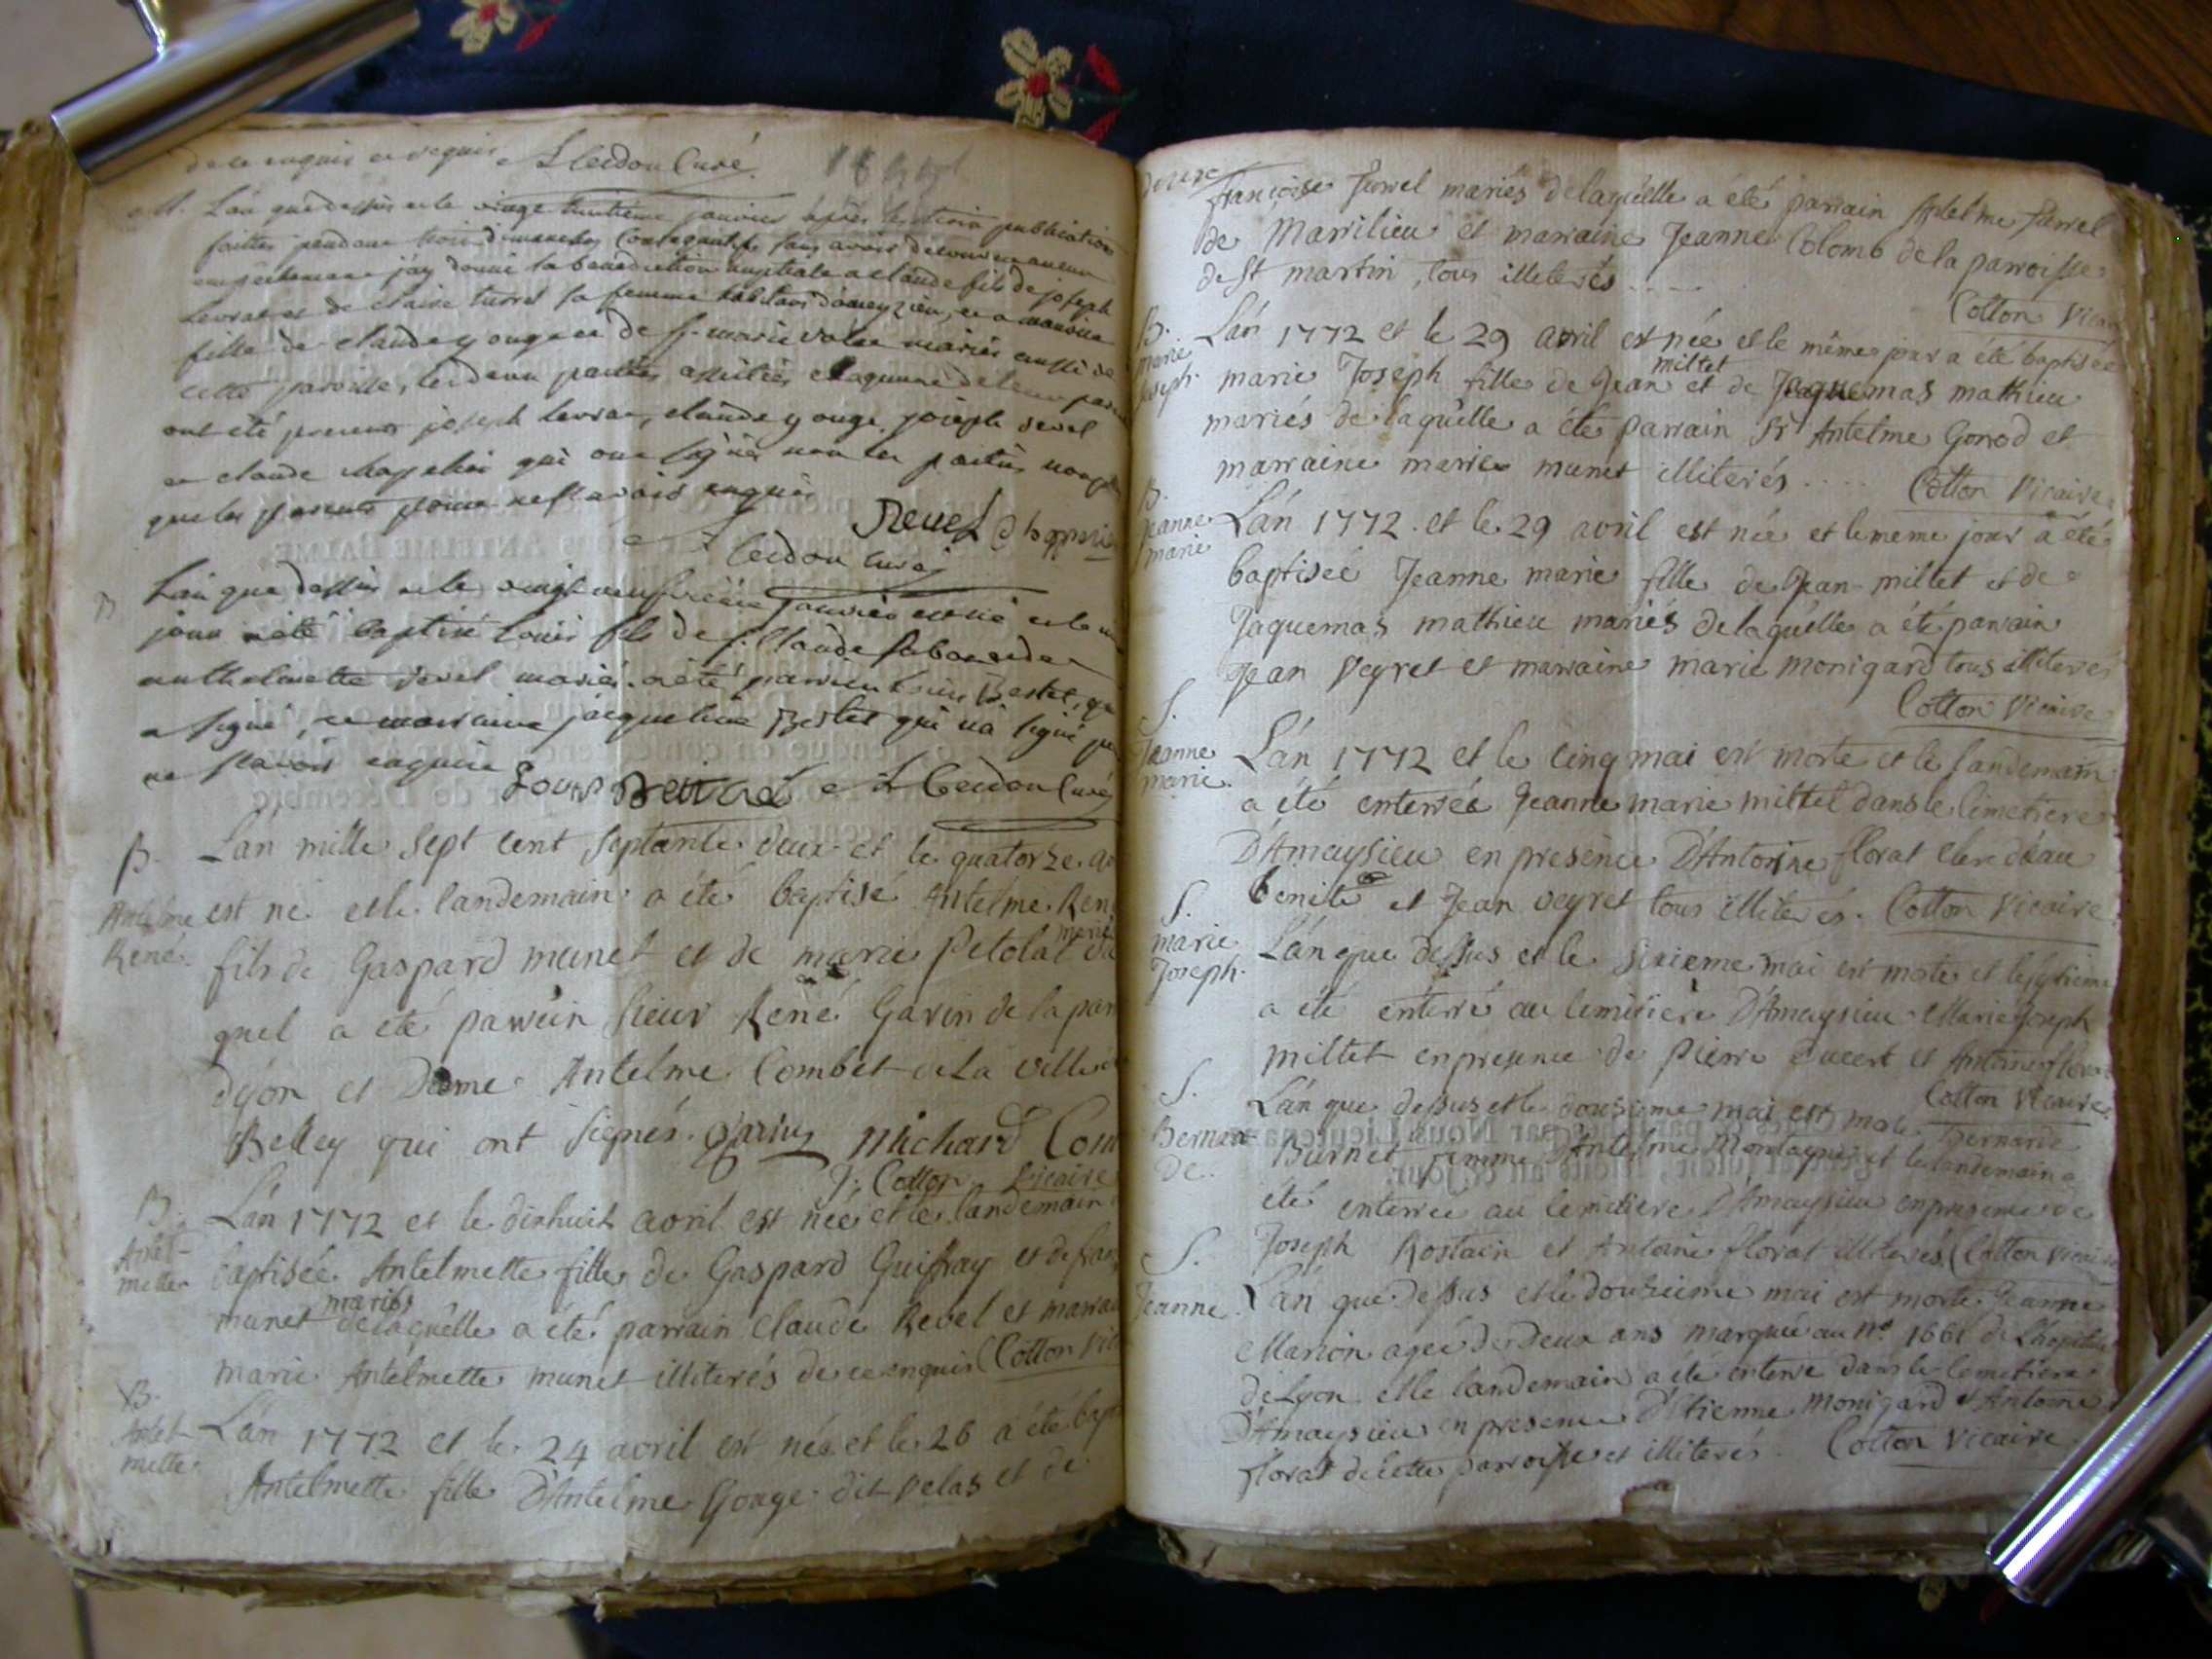 de ce enquis et requis Cuidon Curé
M. L'an que dessus et le vingt huitieme janvier après les trois publications
faittes pendant trois dimanches consequutifs sans avoir decouvert aucun
empechement j'ay donné la benediction nuptiale a claude fils de joseph
Levrat et de claire turrel sa femme habitans d'ameyzieu, et a
fille de claude youge et de mariés aussi de
cette paroisse, les deux parties assistées chaqu'une de leur
ont été presents joseph levrat, claude youge, joseph revel
et claude chapelin qui ont signés non les parties
que les parents pour ne sçavoir enquis
Revel
Cuidon Curé
B L'an que dessus et le vingt neufvieme janvier est né et le
jour a été baptisé Louis fils de Claude et de
anthelmette revel mariés. a été parrain Louis Bertet, qui
a signé, et marraine jacqueline Bertet qui n'a signé
ne sçavoir enquise Louis Cuidon Curé
B. L'án mille sept cent septante deux et le quatorze
Antelme est né et le landemain a été baptisé Antelme René
René. fils de Gaspard munet et de marie Petolat
mariés
quel a été parrein sieur René Garin de la par
dyón et Dame Antelme Combet de La ville
Belley qui ont signés. Garin Michard Com
J. Cotton Vicaire
B. L'án 1772 et le dixhuit avril est née et le landemain
Antel- baptisée Antelmette fille de Gaspard Guiffray et de fran
mette mariés
munet delaquêlle a été parrain Claude Revel et marrai
marie Antelmette munet illiterés de ce enquis Cotton Vic
B.
Antel- L'án 1772 et le 24 avril est née et le 26 a été bapt
mette Antelmette fille D'Antelme Youge dit pelas et de
françoise Turrel mariés delaquêlle a été parrain Antelme Turrel
de Marilieu et marraine Jeanne Colomb de la parroisse
de St martin, tous illiterés ....
Cotton Vicai
B. L'án 1772 et le 29 avril est née et le même jour a été baptisée
marie millet
joseph. marie Joseph fille de Jean et de Jaquemas mathieu
mariés de laquêlle a été parrain Sr Antelme Gonod et
marraine marie munet illiterés .... Cotton Vicaire
B.
Jeanne L'án 1772. et le 29 avril est née et le meme jour a été
marie baptiseé Jeanne marie fille de Jean millet et de
Jaquemas mathieu mariés delaquêlle a été parrain
Jean Veyret et marraine marie monigard tous illiterés
Cotton Vicaire
S.
Jeanne L'án 1772 et le cinq mai est morte et le landemain
marie. a été enterrée Jeanne marie millet dans le cimetiere
D'Amaysieu en presence D'Antoine florat clerc d'eau
benite et Jean veyret tous illiterés. Cotton Vicaire
S.
marie L'án que dessus et le sixieme mai est morte et le septieme
Joseph. a été enterré au cimitiere D'Amaysieu Marie Joseph
millet en presence de Pierre Ducert et Antoine flora
Cotton Vicaire
S. L'án que dessus et le mai est morte Bernarde
Bernar- Burnet femme D'Antelme Montagne et le landemain a
de. été enterrée au cemitiere D'Amaysieu en presence de
Joseph Rostain et Antoine florat illiterés Cotton Vicaire
S.
Jeanne. L'án que dessus et le douzieme mai est morte Jeanne
Marion ageé de deux ans marquée au No 1661 de L'hopital
de Lyon et le landemain a été enterré dans le cemetiere
D'Amaysieu en presence D'Etienne Monigard et Antoine
florat de cette parroisse et illiterés. Cotton Vicaire